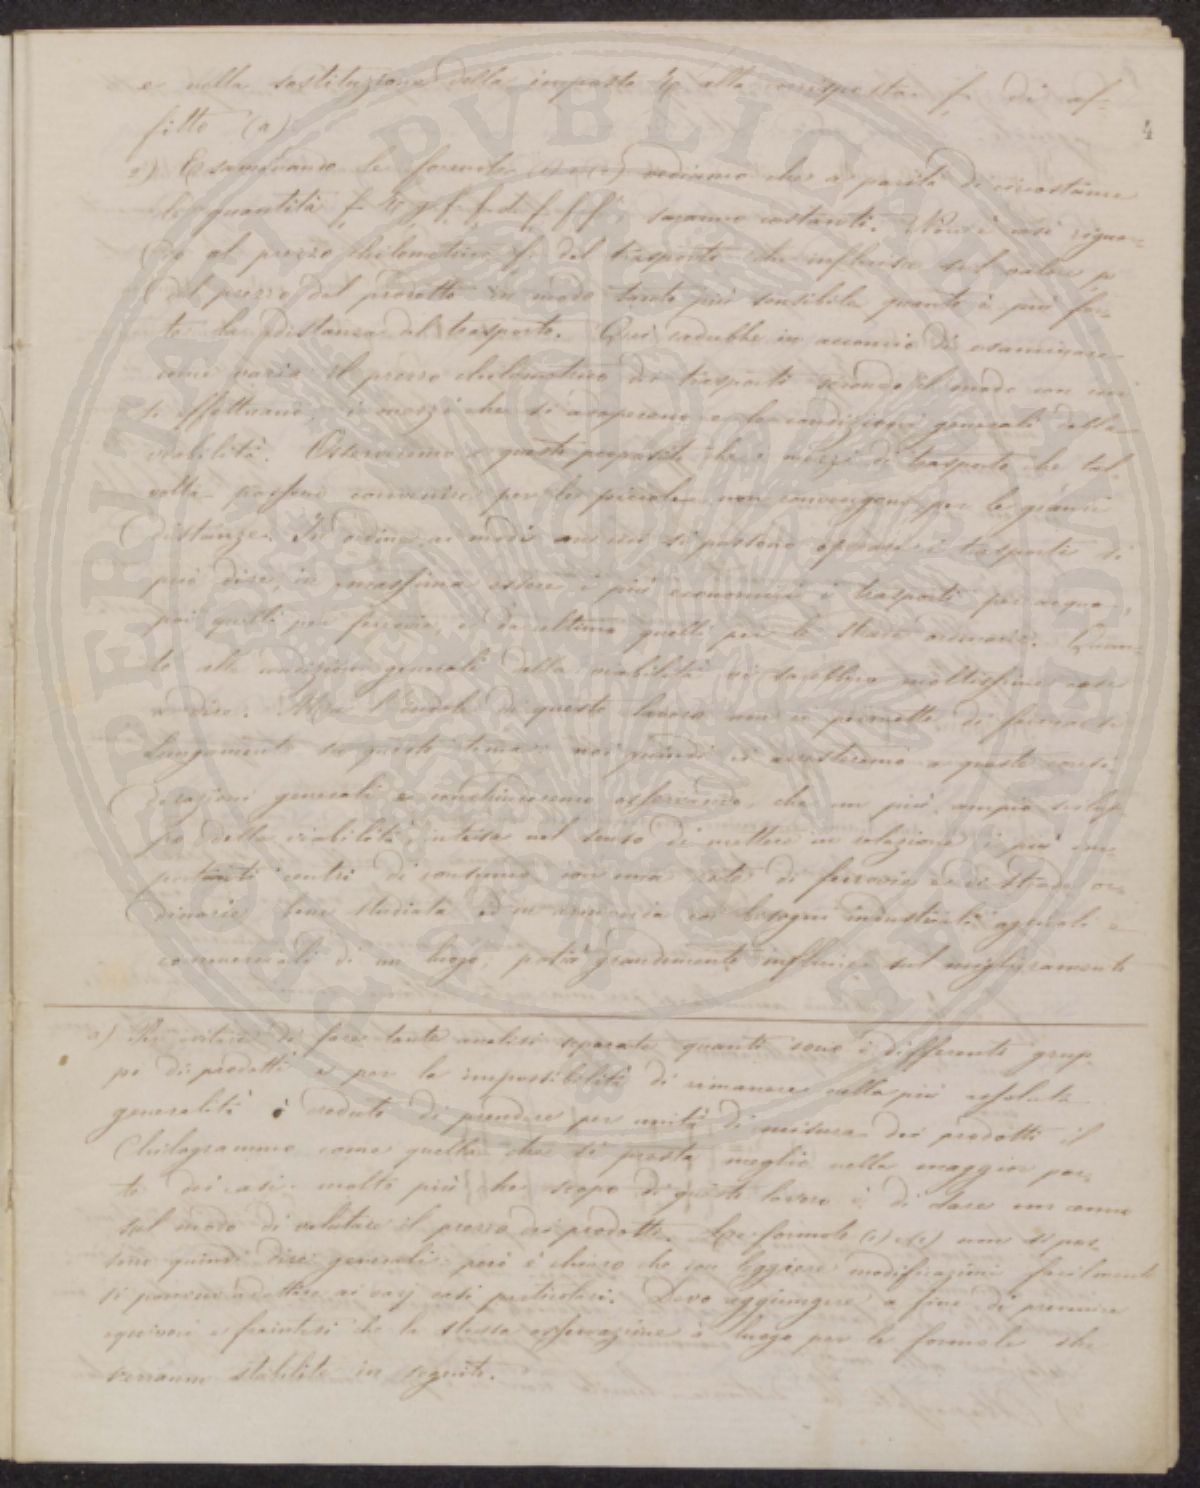 e nella sostituzione della imposta alla corrisposta f di af-
fitto (a).
4
2) Esaminando le formole (1) e (2) vediamo che a parità di circostanze
le quantità saranno costanti. Non è così riguar-
do al prezzo chilometrico del trasporto che influisce sul valore p
del prezzo del prodotto in modo tanto più sensibile quanto è più for-
te la distanza del trasporto. Qui cadrebbe in acconcio di esaminare
come varia il prezzo chilometrico dei trasporti secondo il modo con cui
si effettuano, i mezzi che si adoperano e le condizioni generali della
viabilità. Osserveremo a questo proposito che i mezzi di trasporto che tal
volta possono convenire per le piccole non convengono per le grandi
distanze. In ordine ai modi con cui si possono operare i trasporti si
può dire, in massima essere i più economici i trasporti per acqua,
poi quelli per ferrovia, e da ultimo quelli per le strade ordinarie. Quan-
to alle condizioni generali della viabilità vi sarebbero moltissime cose
a dire. Ma l'indole di questo lavoro non ci permette di fermarci
lungamente su questo tema: noi quindi ci arresteremo a queste consi-
derazioni generali e conchiuderemo osservando, che un più ampio svilup-
po della viabilità, intesa nel senso di mettere in relazione i più im-
portanti centri di consumo con una rete di ferrovie e di strade or-
dinarie bene studiata ed in armonia coi bisogni industriali agricoli e
commerciali di un luogo, potrà grandemente influire sul miglioramento
a) Per evitare di fare tante analisi separate quanti sono i differenti grup-
pi di prodotti e per la impossibilità di rimanere nella più assoluta
generalità ò creduto di prendere per unità di misura dei prodotti il
Chilogrammo come quella che si presta meglio nella maggior par-
te dei casi: molto più che scopo di questo lavoro è di dare un cenno
sul modo di valutare il prezzo dei prodotti. Le formole (1) e (2) non si pos-
sono quindi dire generali: però è chiaro che con leggiere modificazioni facilmente
si possono adottare ai varj casi particolari. Devo aggiungere a fine di prevenire
equivoci e fraintesi che la stessa osservazione à luogo per le formole che
verranno stabilite in seguito.
PROPERITATI PUBLICAE AUGENDAE